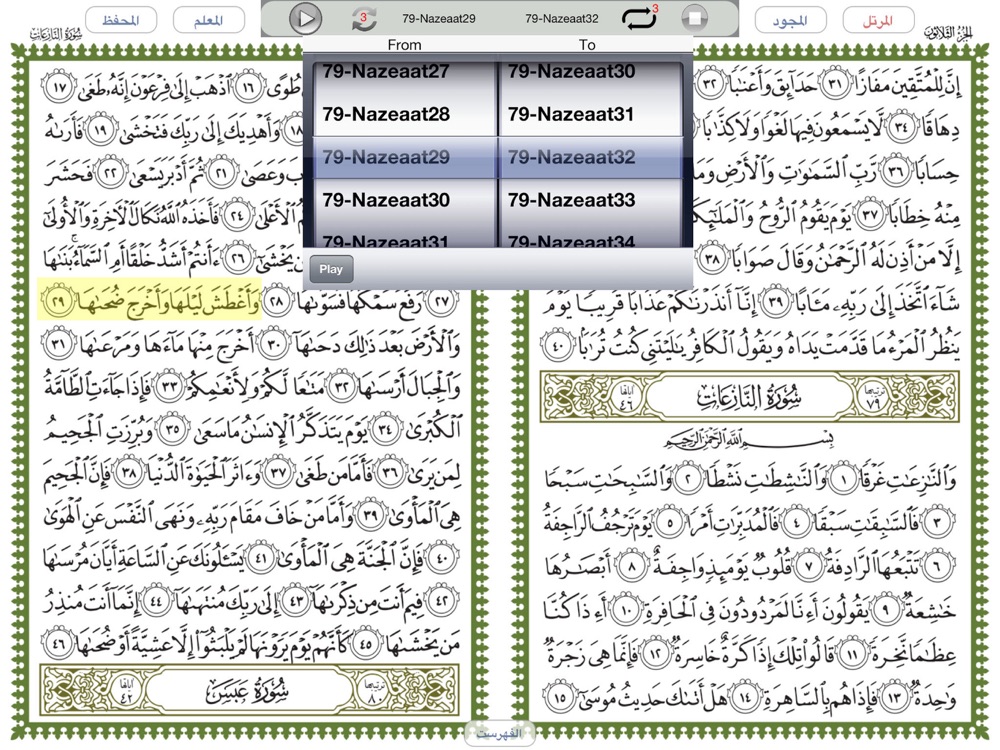 المحفظ
المعلم
3
79-Nazeaat29
79-Nazeaat32
3
المجود
المرتل
سُورَةُ النَّازِعَاتِ
الجُزْءُ الثَّلَاثُونَ
From
To
79-Nazeaat27
79-Nazeaat30
79-Nazeaat28
79-Nazeaat31
79-Nazeaat29
79-Nazeaat32
79-Nazeaat30
79-Nazeaat33
79-Nazeaat31
79-Nazeaat34
Play
إِنَّ لِلْمُتَّقِينَ مَفَازًا ٣١ حَدَآئِقَ وَأَعْنَٰبًا ٣٢
دِهَاقًا ٣٤ لَّا يَسْمَعُونَ فِيهَا لَغْوًا وَلَا كِذَّٰبًا
حِسَابًا ٣٦ رَّبِّ ٱلسَّمَٰوَٰتِ وَٱلْأَرْضِ
مِنْهُ خِطَابًا ٣٧ يَوْمَ يَقُومُ ٱلرُّوحُ
إِلَّا مَنْ أَذِنَ لَهُ ٱلرَّحْمَٰنُ وَقَالَ صَوَابًا ٣٨
شَآءَ ٱتَّخَذَ إِلَىٰ رَبِّهِۦ مَـَٔابًا ٣٩ إِنَّآ أَنذَرْنَٰكُمْ عَذَابًا قَرِيبًا يَوْمَ
يَنظُرُ ٱلْمَرْءُ مَا قَدَّمَتْ يَدَاهُ وَيَقُولُ ٱلْكَافِرُ يَٰلَيْتَنِى كُنتُ تُرَٰبًۢا ٤٠
ترتيبها ٧٩ سُورَةُ النَّازِعَاتِ آياتها ٤٦
بِسْمِ ٱللَّهِ ٱلرَّحْمَٰنِ ٱلرَّحِيمِ
وَٱلنَّٰزِعَٰتِ غَرْقًا ١ وَٱلنَّٰشِطَٰتِ نَشْطًا ٢ وَٱلسَّٰبِحَٰتِ سَبْحًا
٣ فَٱلسَّٰبِقَٰتِ سَبْقًا ٤ فَٱلْمُدَبِّرَٰتِ أَمْرًا ٥ يَوْمَ تَرْجُفُ ٱلرَّاجِفَةُ
٦ تَتْبَعُهَا ٱلرَّادِفَةُ ٧ قُلُوبٌ يَوْمَئِذٍ وَاجِفَةٌ ٨ أَبْصَٰرُهَا
خَٰشِعَةٌ ٩ يَقُولُونَ أَءِنَّا لَمَرْدُودُونَ فِى ٱلْحَافِرَةِ ١٠ أَءِذَا كُنَّا
عِظَٰمًا نَّخِرَةً ١١ قَالُوا۟ تِلْكَ إِذًا كَرَّةٌ خَاسِرَةٌ ١٢ فَإِنَّمَا هِىَ زَجْرَةٌ
وَٰحِدَةٌ ١٣ فَإِذَا هُم بِٱلسَّاهِرَةِ ١٤ هَلْ أَتَىٰكَ حَدِيثُ مُوسَىٰٓ ١٥
طُوًى ١٦ ٱذْهَبْ إِلَىٰ فِرْعَوْنَ إِنَّهُۥ طَغَىٰ ١٧
١٨ وَأَهْدِيَكَ إِلَىٰ رَبِّكَ فَتَخْشَىٰ ١٩ فَأَرَىٰهُ
وَعَصَىٰ ٢١ ثُمَّ أَدْبَرَ يَسْعَىٰ ٢٢ فَحَشَرَ
ٱلْأَعْلَىٰ ٢٤ فَأَخَذَهُ ٱللَّهُ نَكَالَ ٱلْءَاخِرَةِ وَٱلْأُولَىٰٓ
يَخْشَىٰٓ ٢٦ ءَأَنتُمْ أَشَدُّ خَلْقًا أَمِ ٱلسَّمَآءُ ۚ بَنَىٰهَا
٢٧ رَفَعَ سَمْكَهَا فَسَوَّىٰهَا ٢٨ وَأَغْطَشَ لَيْلَهَا وَأَخْرَجَ ضُحَىٰهَا ٢٩
وَٱلْأَرْضَ بَعْدَ ذَٰلِكَ دَحَىٰهَآ ٣٠ أَخْرَجَ مِنْهَا مَآءَهَا وَمَرْعَىٰهَا ٣١
وَٱلْجِبَالَ أَرْسَىٰهَا ٣٢ مَتَٰعًا لَّكُمْ وَلِأَنْعَٰمِكُمْ ٣٣ فَإِذَا جَآءَتِ ٱلطَّآمَّةُ
ٱلْكُبْرَىٰ ٣٤ يَوْمَ يَتَذَكَّرُ ٱلْإِنسَٰنُ مَا سَعَىٰ ٣٥ وَبُرِّزَتِ ٱلْجَحِيمُ
لِمَن يَرَىٰ ٣٦ فَأَمَّا مَن طَغَىٰ ٣٧ وَءَاثَرَ ٱلْحَيَوٰةَ ٱلدُّنْيَا ٣٨ فَإِنَّ ٱلْجَحِيمَ
هِىَ ٱلْمَأْوَىٰ ٣٩ وَأَمَّا مَنْ خَافَ مَقَامَ رَبِّهِۦ وَنَهَى ٱلنَّفْسَ عَنِ ٱلْهَوَىٰ
٤٠ فَإِنَّ ٱلْجَنَّةَ هِىَ ٱلْمَأْوَىٰ ٤١ يَسْـَٔلُونَكَ عَنِ ٱلسَّاعَةِ أَيَّانَ مُرْسَىٰهَا
٤٢ فِيمَ أَنتَ مِن ذِكْرَىٰهَآ ٤٣ إِلَىٰ رَبِّكَ مُنتَهَىٰهَآ ٤٤ إِنَّمَآ أَنتَ مُنذِرُ
مَن يَخْشَىٰهَا ٤٥ كَأَنَّهُمْ يَوْمَ يَرَوْنَهَا لَمْ يَلْبَثُوٓا۟ إِلَّا عَشِيَّةً أَوْ ضُحَىٰهَا ٤٦
ترتيبها ٨٠ سُورَةُ عَبَسَ آياتها ٤٢
الفهرست